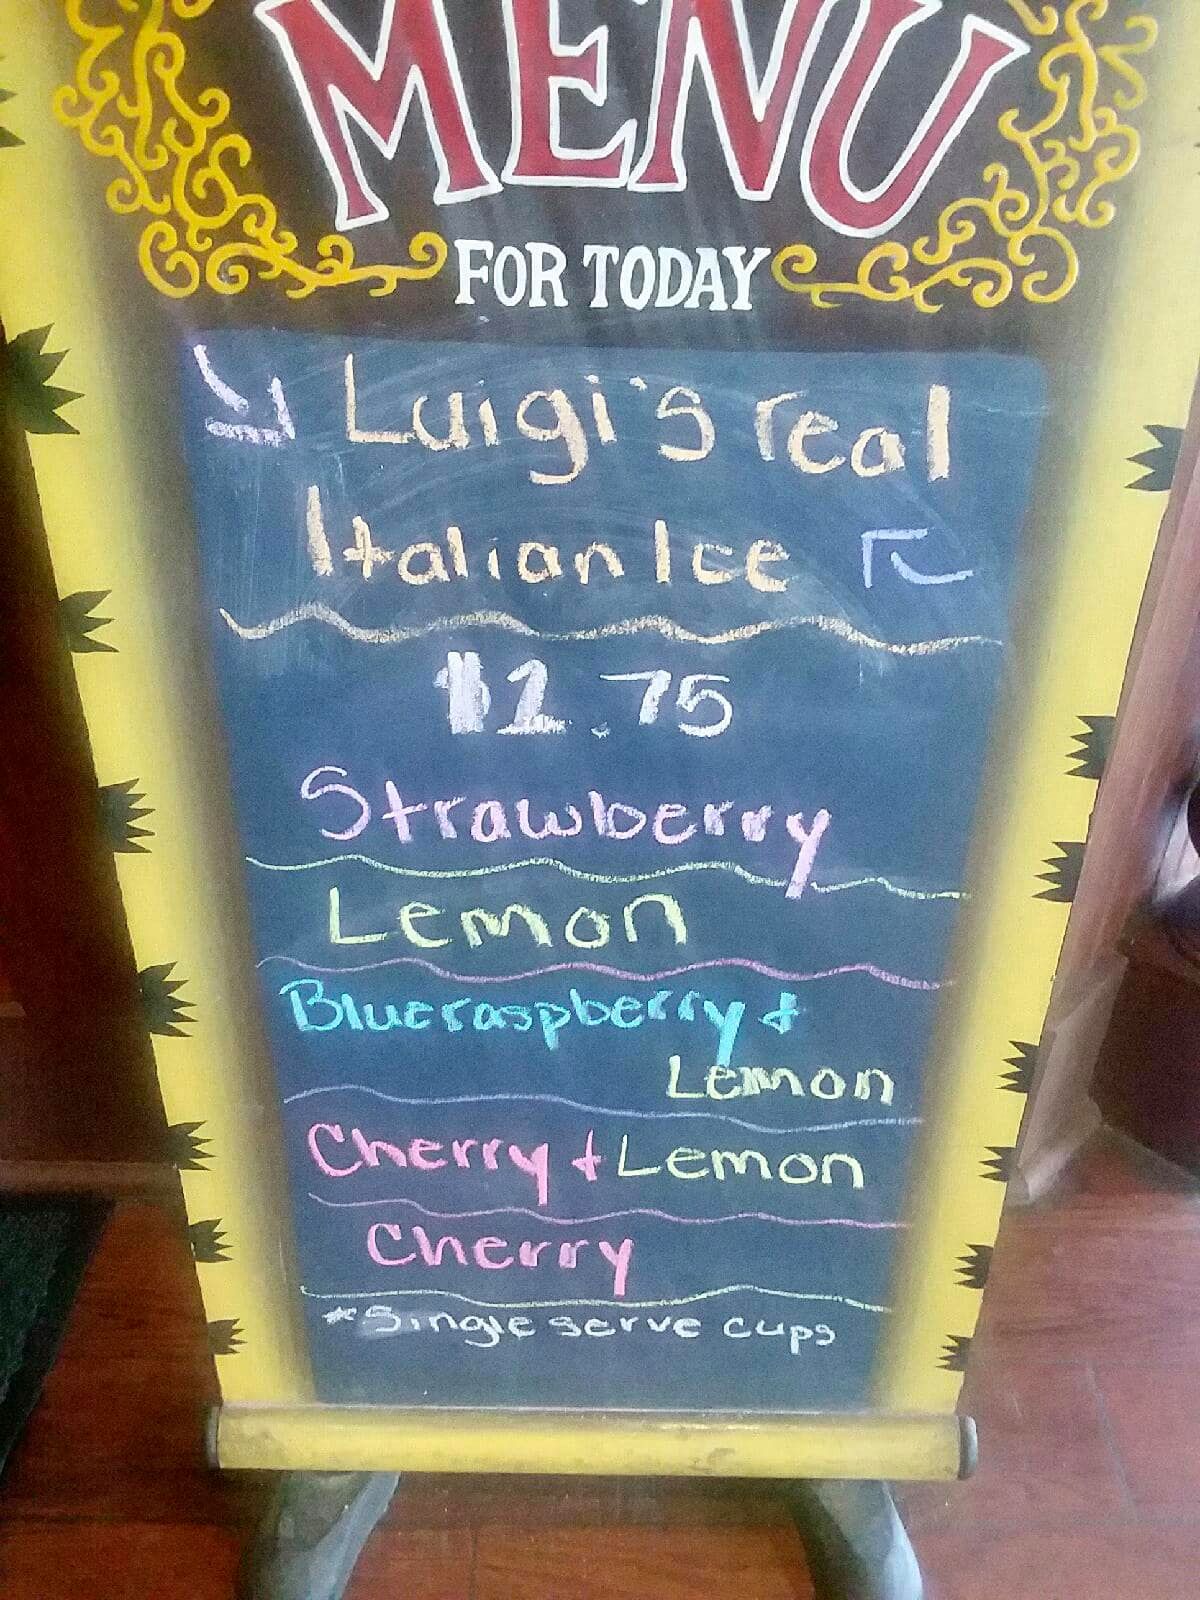 MENU
FOR TODAY
Luigi's real
Italian Ice
$2.75
Strawberry
Lemon
Blueraspberry +
Lemon
Cherry + Lemon
Cherry
*Single serve cups